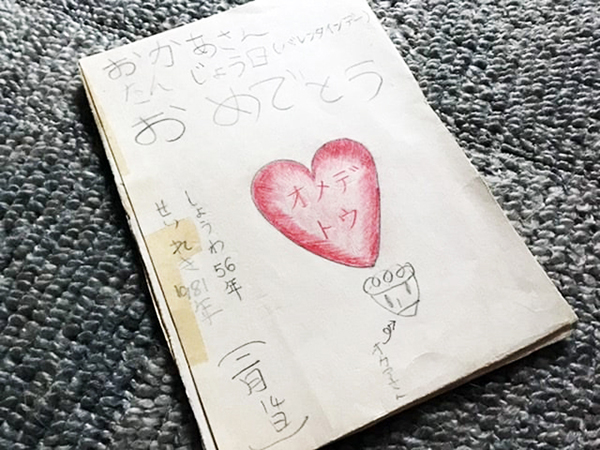 おかあさん
たんじょう日(バレンタインデー)
おめでとう
オメデ
トウ
しょうわ56年
せいれき1981年
(二月14日)